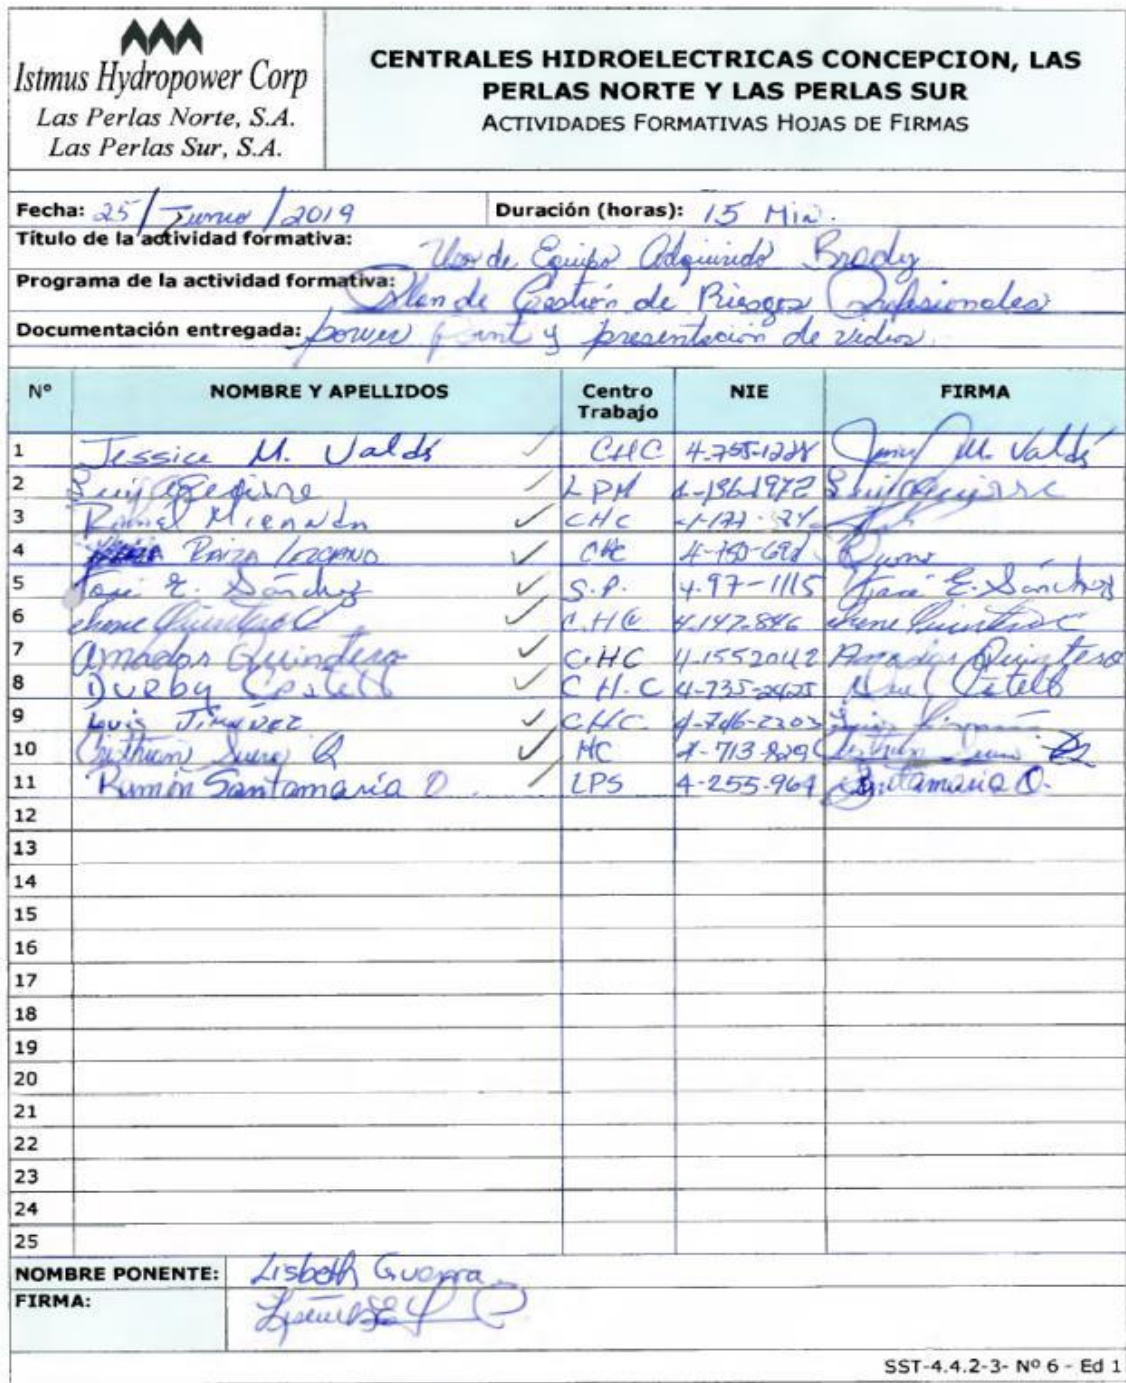 Istmus Hydropower Corp
Las Perlas Norte, S.A.
Las Perlas Sur, S.A.
CENTRALES HIDROELECTRICAS CONCEPCION, LAS
PERLAS NORTE Y LAS PERLAS SUR
ACTIVIDADES FORMATIVAS HOJAS DE FIRMAS
Fecha: 25/Junio/2019 Duración (horas): 15 Min.
Título de la actividad formativa: Uso de Equipo Adquirido Brady
Programa de la actividad formativa: Plan de Gestión de Riesgos Profesionales
Documentación entregada: power point y presentación de videos.
Nº NOMBRE Y APELLIDOS Centro Trabajo NIE FIRMA
1 Jessica M. Valdés CHC 4-755-1228 M. Valdés
2 Luis LPN 4-196-1972 Luis
3 CHC
4 Raiza Lozcano CHC
5 José E. Sánchez S.P. 4-97-1115 José E. Sánchez
6 Irene Quintero C C.H.C 4.147.846 Irene Quintero C
7 Amador Quintero C.HC Amador Quintero
8 Durby Castello C H.C 4-735-2425
9 Luis Jiménez CHC 4-746-2203 Luis
10 HC 4-713-829
11 Ramón Santamaría O. LPS 4-255-964 Santamaria O.
12
13
14
15
16
17
18
19
20
21
22
23
24
25
NOMBRE PONENTE: Lisbeth Guerra
FIRMA:
SST-4.4.2-3- Nº 6 - Ed 1